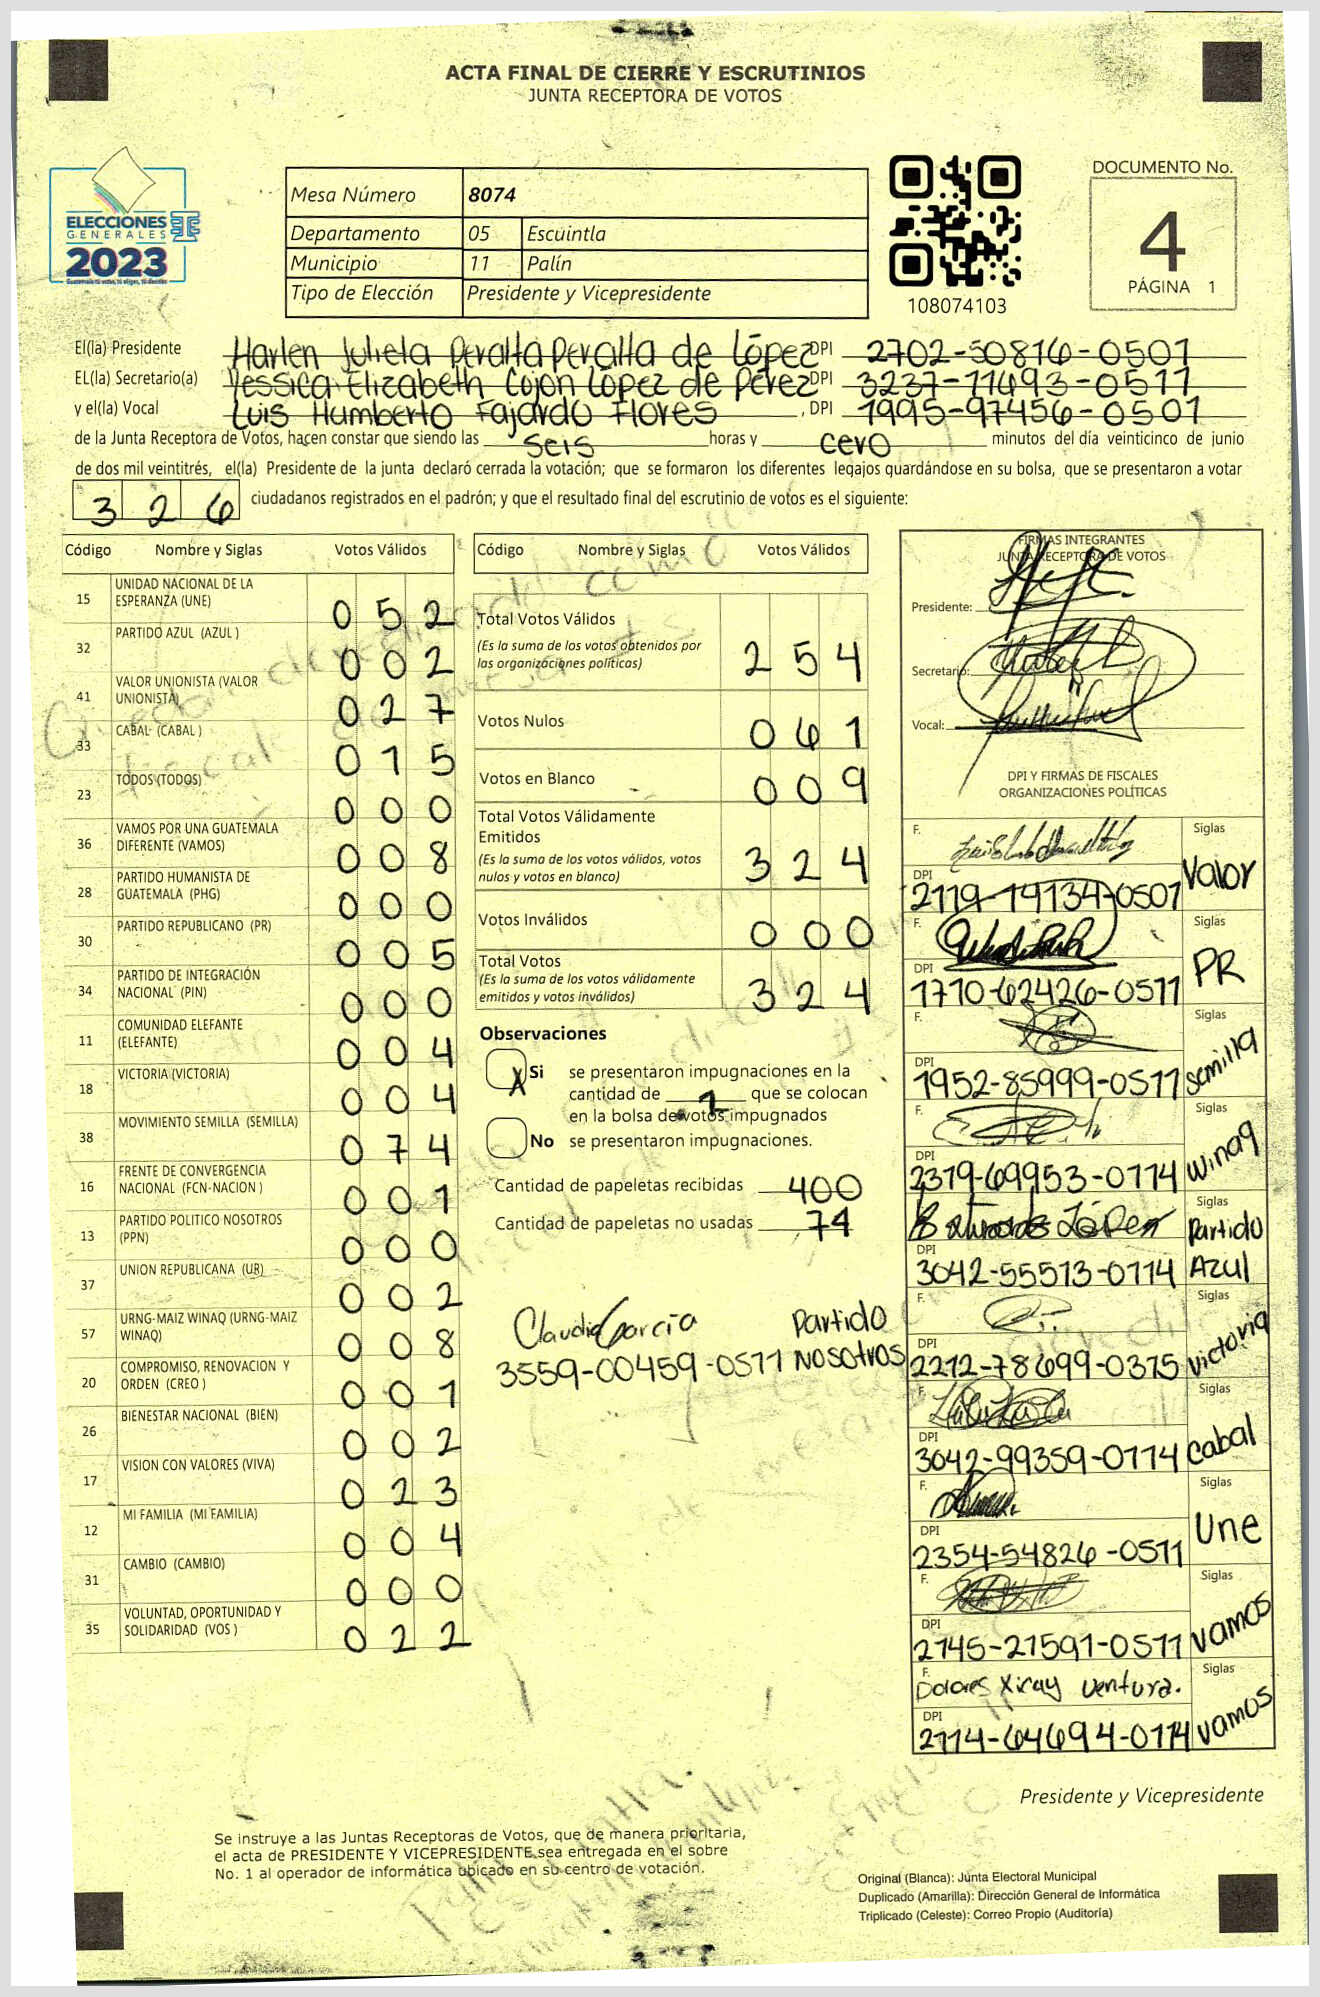 ACTA FINAL DE CIERRE Y ESCRUTINIOS
JUNTA RECEPTORA DE VOTOS
ELECCIONES
GENERALES
2023
Mesa Número 8074
Departamento 05 Escuintla
Municipio 11 Palín
Tipo de Elección Presidente y Vicepresidente
108074103
DOCUMENTO No.
4
PÁGINA 1
El(la) Presidente Harlen Julieta Peralta Peralta de López DPI 2702-50816-0501
EL(la) Secretario(a) Yessica Elizabeth Cojon López de Pérez DPI 3237-11493-0511
y el(la) Vocal Luis Humberto Fajardo Flores , DPI 1995-97456-0501
de la Junta Receptora de Votos, hacen constar que siendo las seis horas y cero minutos del día veinticinco de junio
de dos mil veintitrés, el(la) Presidente de la junta declaró cerrada la votación; que se formaron los diferentes legajos guardándose en su bolsa, que se presentaron a votar
326 ciudadanos registrados en el padrón; y que el resultado final del escrutinio de votos es el siguiente:
Código Nombre y Siglas Votos Válidos
15 UNIDAD NACIONAL DE LA ESPERANZA (UNE) 052
32 PARTIDO AZUL (AZUL ) 002
41 VALOR UNIONISTA (VALOR UNIONISTA) 027
33 CABAL (CABAL ) 015
23 TODOS (TODOS) 000
36 VAMOS POR UNA GUATEMALA DIFERENTE (VAMOS) 008
28 PARTIDO HUMANISTA DE GUATEMALA (PHG) 000
30 PARTIDO REPUBLICANO (PR) 005
34 PARTIDO DE INTEGRACIÓN NACIONAL (PIN) 000
11 COMUNIDAD ELEFANTE (ELEFANTE) 004
18 VICTORIA (VICTORIA) 004
38 MOVIMIENTO SEMILLA (SEMILLA) 074
16 FRENTE DE CONVERGENCIA NACIONAL (FCN-NACION ) 001
13 PARTIDO POLITICO NOSOTROS (PPN) 000
37 UNION REPUBLICANA (UR) 002
57 URNG-MAIZ WINAQ (URNG-MAIZ WINAQ) 008
20 COMPROMISO, RENOVACION Y ORDEN (CREO ) 001
26 BIENESTAR NACIONAL (BIEN) 002
17 VISION CON VALORES (VIVA) 023
12 MI FAMILIA (MI FAMILIA) 004
31 CAMBIO (CAMBIO) 000
35 VOLUNTAD, OPORTUNIDAD Y SOLIDARIDAD (VOS ) 022
Código Nombre y Siglas Votos Válidos
Total Votos Válidos
(Es la suma de los votos obtenidos por
las organizaciones políticas) 254
Votos Nulos 061
Votos en Blanco 009
Total Votos Válidamente
Emitidos
(Es la suma de los votos válidos, votos
nulos y votos en blanco) 324
Votos Inválidos 000
Total Votos
(Es la suma de los votos válidamente
emitidos y votos inválidos) 324
Observaciones
X Si se presentaron impugnaciones en la
cantidad de 1 que se colocan
en la bolsa de votos impugnados
No se presentaron impugnaciones.
Cantidad de papeletas recibidas 400
Cantidad de papeletas no usadas 74
Claudia García Partido
3559-00459-0511 Nosotros
FIRMAS INTEGRANTES
JUNTA RECEPTORA DE VOTOS
Presidente:
Secretario:
Vocal:
DPI Y FIRMAS DE FISCALES
ORGANIZACIONES POLÍTICAS
F. Siglas
DPI Valor
2119-19134-0501
F. Siglas
DPI PR
1710-62426-0511
F. Siglas
DPI semilla
1952-85999-0511
F. Siglas
DPI winaq
2379-69953-0114
Siglas
DPI Partido
3042-55513-0114 Azul
F. Siglas
DPI victoria
2212-78699-0315
F. Siglas
DPI cabal
3042-99359-0114
F. Siglas
DPI Une
2354-54826-0511
F. Siglas
DPI vamos
2745-21591-0511
F. Siglas
Dolores Xicay Ventura.
DPI vamos
2114-64694-0114
Presidente y Vicepresidente
Se instruye a las Juntas Receptoras de Votos, que de manera prioritaria,
el acta de PRESIDENTE Y VICEPRESIDENTE sea entregada en el sobre
No. 1 al operador de informática ubicado en su centro de votación.
Original (Blanca): Junta Electoral Municipal
Duplicado (Amarilla): Dirección General de Informática
Triplicado (Celeste): Correo Propio (Auditoría)